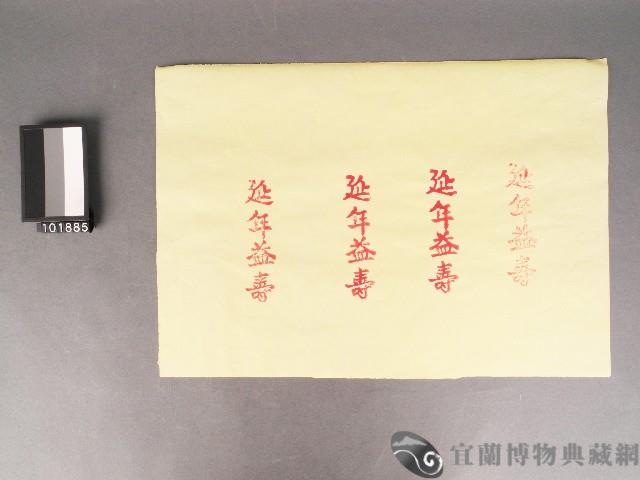 延年益壽
延年益壽
延年益壽
延年益壽
101885
宜蘭博物典藏網